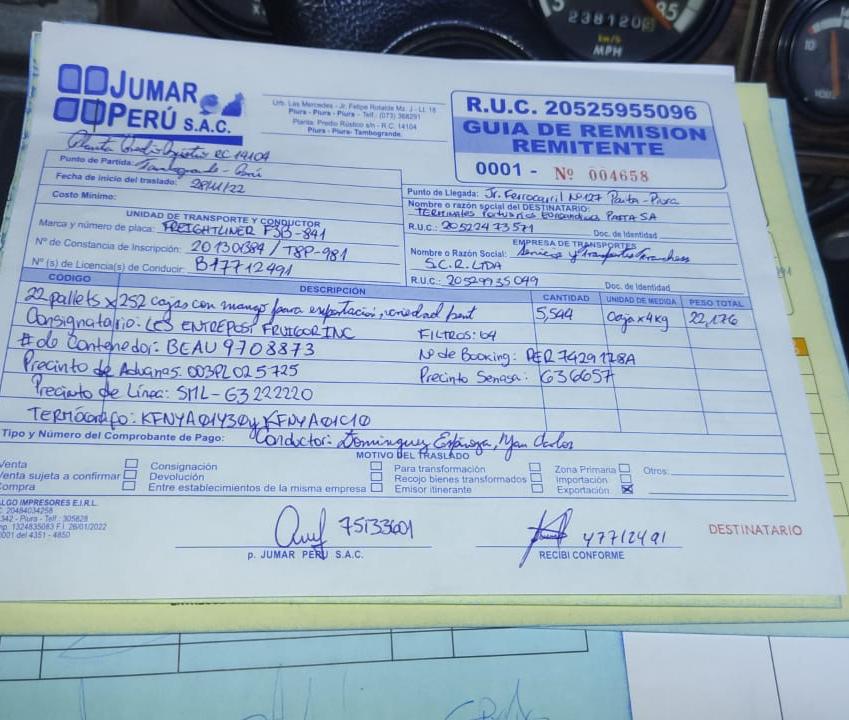 238120
km/h
MPH
JUMAR
PERÚ S.A.C.
Urb. Las Mercedes - Jr. Felipe Rotalde Mz. J - Lt. 16
Piura - Piura - Piura - Telf.: (073) 368291
Planta: Predio Rústico s/n - R.C. 14104
Piura - Piura- Tambogrande.
R.U.C. 20525955096
GUIA DE REMISION
REMITENTE
0001 - Nº 004658
Planta Predio Rústico RC 14104
Punto de Partida: Tambogrande - Perú
Fecha de inicio del traslado: 28/11/22
Costo Mínimo:
Punto de Llegada: Jr. Ferrocarril Nº127 Paita - Piura
Nombre o razón social del DESTINATARIO:
TERMINALES Portuarios Euroandinos PAITA SA
R.U.C.: 20522473571 Doc. de Identidad
UNIDAD DE TRANSPORTE Y CONDUCTOR
Marca y número de placa: FREIGHTLINER F3B-841
Nº de Constancia de Inscripción: 20130384 / T8P-981
Nº (s) de Licencia(s) de Conducir: B47712491
EMPRESA DE TRANSPORTES
Nombre o Razón Social: Servicios y Transportes
S.C.R. LTDA
R.U.C.: 20529935049 Doc. de Identidad
CÓDIGO DESCRIPCIÓN CANTIDAD UNIDAD DE MEDIDA PESO TOTAL
22 pallets x 252 cajas con mango para exportacion, variedad kent 5,544 Caja x 4kg 22,176
Consignatario: LES ENTREPOST FRUIGOR INC FILTROS: 64
# de Contenedor: BEAU 9708873 Nº de Booking: PER 7429178A
Precinto de Aduanas: 003PL025725 Precinto Senasa: 636657
Precinto de Línea: SML-G3222220
TERMÓGRAFO: KFNYA01Y30 y KFNYA01C10
Tipo y Número del Comprobante de Pago: Conductor: Dominguez Espinoza, Jean Carlos
MOTIVO DEL TRASLADO
Venta Consignación Para transformación Zona Primaria Otros:
Venta sujeta a confirmar Devolución Recojo bienes transformados Importación
Compra Entre establecimientos de la misma empresa Emisor itinerante Exportación
ALGO IMPRESORES E.I.R.L.
C. 20484034258
342 - Piura - Telf.: 305828
mp. 1324835083 F.I. 26/01/2022
0001 del 4351 - 4850
75133601
p. JUMAR PERÚ S.A.C.
47712491
RECIBI CONFORME
DESTINATARIO